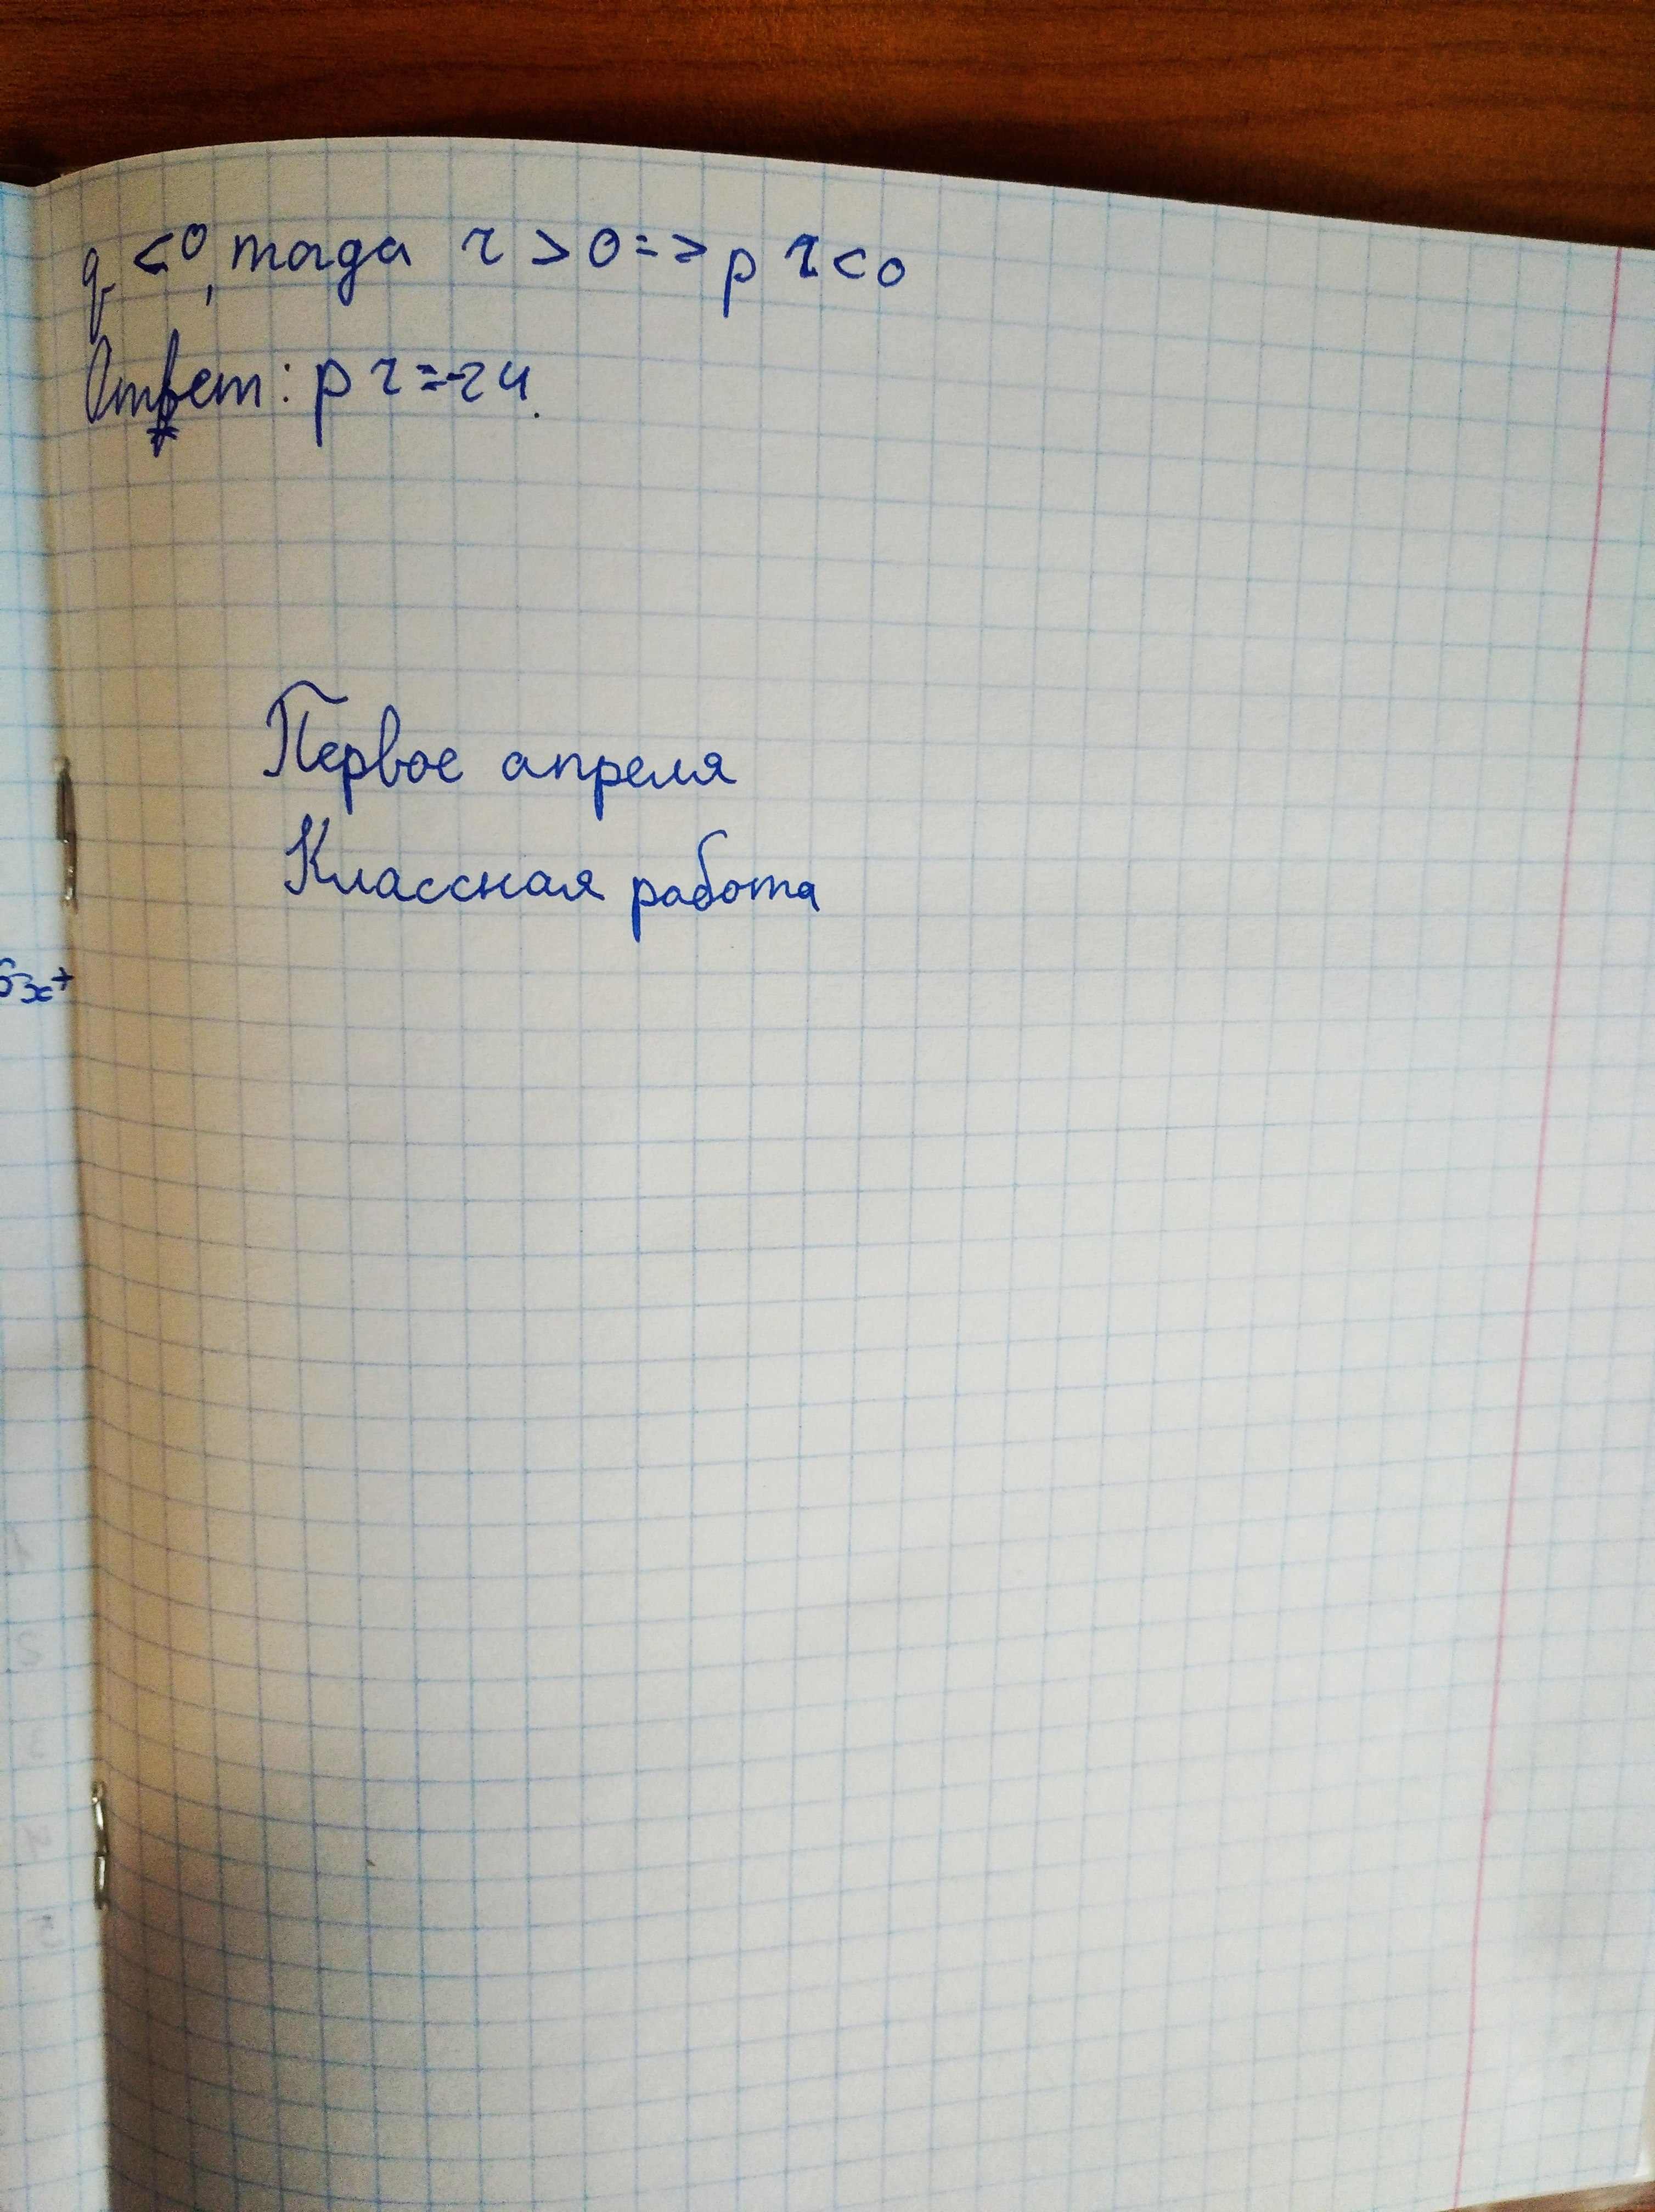 q < 0, тогда r > 0 => p r < 0
Ответ: p r = -24.
Первое апреля
Классная работа
6x+